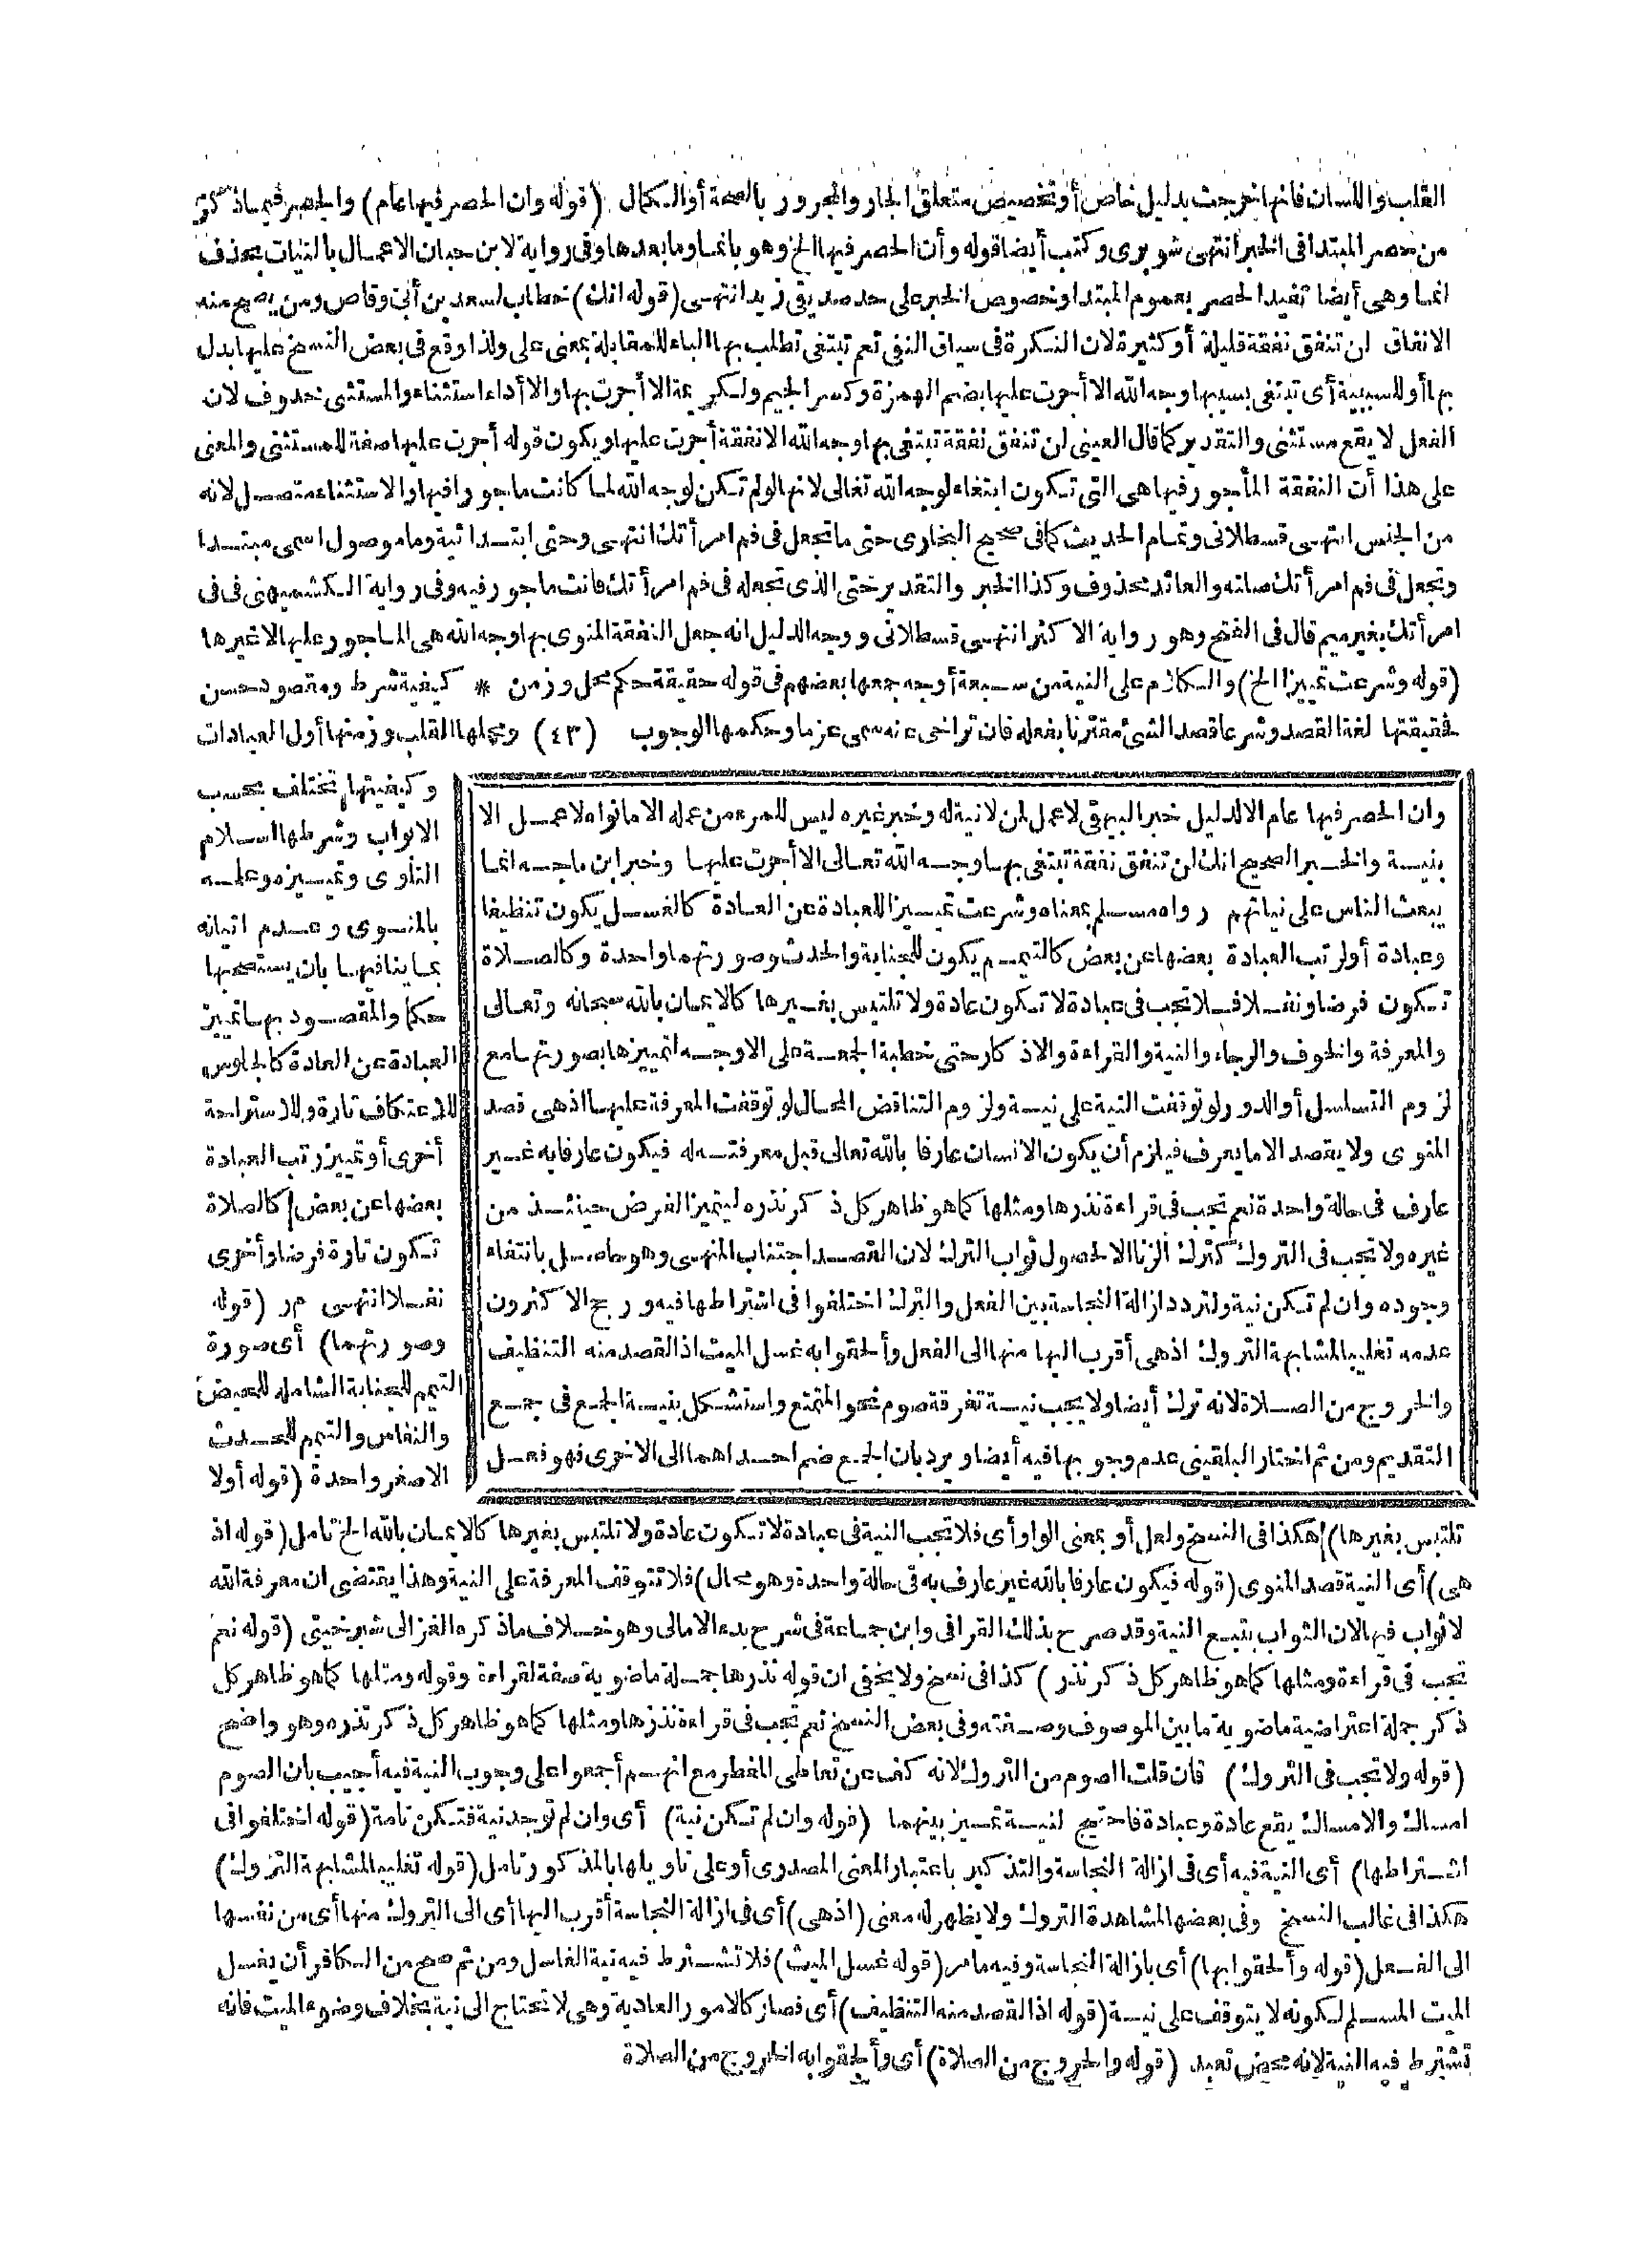 القلب واللسان فانها خرجت بدليل خاص أو تخصيص متعلق الجار والمجرور بالصحة أو الكمال (قوله وان الحصر فيها عام) والحصر فيما ذكر
من حصر المبتدا فى الخبر انتهى شوبرى وكتب أيضا قوله وأن الحصر فيها الخ وهو بانما وما بعدها وفى رواية لابن حبان الاعمال بالنيات بحذف
انما وهى أيضا تفيد الحصر بعموم المبتدا وخصوص الخبر على حد صديقى زيد انتهى (قوله انك) خطاب لسعد بن أبى وقاص ومن يصح منه
الانفاق لن تنفق نفقة قليلة أو كثيرة لان النكرة فى سياق النفى تعم تبتغى تطلب بها الباء للمقابلة بمعنى على ولذا وقع فى بعض النسخ عليها بدل
بها أو للسببية أى تبتغى بسببها وجه الله الا أجرت عليها بضم الهمزة وكسر الجيم ولكريمة الا أجرت بها والا أداة استثناء والمستثنى محذوف لان
الفعل لا يقع مستثنى والتقدير كما قال العينى لن تنفق نفقة تبتغى بها وجه الله الا نفقة أجرت عليها ويكون قوله أجرت عليها صفة للمستثنى والمعنى
على هذا أن النفقة المأجور فيها هى التى تكون ابتغاء لوجه الله تعالى لانها لو لم تكن لوجه الله لما كانت ماجورا فيها والاستثناء متصل لانه
من الجنس انتهى قسطلانى وتمام الحديث كما فى صحيح البخارى حتى ما تجعل فى فم امرأتك انتهى وحتى ابتدائية وما موصول اسمى مبتدا
وتجعل فى فم امرأتك صلته والعائد محذوف وكذا الخبر والتقدير حتى الذى تجعله فى فم امرأتك فانت ماجور فيه وفى رواية الكشميهنى فى فى
امرأتك بغير ميم قال فى الفتح وهو رواية الاكثر انتهى قسطلانى ووجه الدليل انه جعل النفقة المنوى بها وجه الله هى الماجور عليها لا غيرها
(قوله وشرعت تمييزا الخ) والكلام على النية من سبعة أوجه جمعها بعضهم فى قوله حقيقة حكم محل وزمن * كيفية شرط ومقصود حسن
فحقيقتها لغة القصد وشرعا قصد الشئ مقترنا بفعله فان تراخى عنه سمى عزما وحكمها الوجوب (٤٣) ومحلها القلب وزمنها أول العبادات
وكيفيتها تختلف بحسب
الابواب وشرطها اسلام
الناوى وتمييزه وعلمه
بالمنوى وعدم اتيانه
بما ينافيها بان يستصحبها
حكما والمقصود بها تمييز
العبادة عن العادة كالجلوس
للاعتكاف تارة وللاستراحة
أخرى أو تمييز رتب العبادة
بعضها عن بعض كالصلاة
تكون تارة فرضا وأخرى
نفلا انتهى م ر (قوله
وصورتهما) أى صورة
التيمم للجنابة الشاملة للحيض
والنفاس والتيمم للحدث
الاصغر واحدة (قوله أو لا
وان الحصر فيها عام الا لدليل خبر البيهقى لا عمل لمن لا نية له وخبر غيره ليس للمرء من عمله الا ما نواه لا عمل الا
بنية والخبر الصحيح انك لن تنفق نفقة تبتغى بها وجه الله تعالى الا أجرت عليها وخبر ابن ماجه انما
يبعث الناس على نياتهم رواه مسلم بمعناه وشرعت تمييزا للعبادة عن العادة كالغسل يكون تنظيفا
وعبادة أو لرتب العبادة بعضها عن بعض كالتيمم يكون للجنابة والحدث وصورتهما واحدة وكالصلاة
تكون فرضا ونفلا فلا تجب فى عبادة لا تكون عادة ولا تلتبس بغيرها كالايمان بالله سبحانه وتعالى
والمعرفة والخوف والرجاء والنية والقراءة والاذكار حتى خطبة الجمعة على الاوجه لتمييزها بصورتها مع
لزوم التسلسل أو الدور لو توقفت النية على نية ولزوم التناقض المحال لو توقفت المعرفة عليها اذ هى قصد
المنوى ولا يقصد الا ما يعرف فيلزم أن يكون الانسان عارفا بالله تعالى قبل معرفته له فيكون عارفا به غير
عارف فى حالة واحدة نعم تجب فى قراءة نذرها ومثلها كما هو ظاهر كل ذكر نذره ليتميز الفرض حينئذ من
غيره ولا تجب فى التروك كترك الزنا الا لحصول ثواب الترك لان القصد اجتناب المنهى وهو حاصل بانتفاء
وجوده وان لم تكن نية ولتردد ازالة النجاسة بين الفعل والترك اختلفوا فى اشتراطها فيه ورجح الاكثرون
عدمه تغليبا لمشابهة التروك اذ هى أقرب اليها منها الى الفعل وألحقوا به غسل الميت اذ القصد منه التنظيف
والخروج من الصلاة لانه ترك أيضا ولا يجب نية تفرقة صوم نحو المتمتع واستشكل بنية الجمع فى جمع
التقديم ومن ثم اختار البلقينى عدم وجوبها فيه أيضا ويرد بان الجمع ضم احداهما الى الاخرى فهو فعل
تلتبس بغيرها) هكذا فى النسخ ولعل أو بمعنى الواو أى فلا تجب النية فى عبادة لا تكون عادة ولا تلتبس بغيرها كالايمان بالله الخ تامل (قوله اذ
هى) أى النية قصد المنوى (قوله فيكون عارفا بالله غير عارف به فى حالة واحدة وهو محال) فلا تتوقف المعرفة على النية وهذا يقتضى ان معرفة الله
لا ثواب فيها لان الثواب يتبع النية وقد صرح بذلك القرافى وابن جماعة فى شرح بدء الامالى وهو خلاف ما ذكره الغزالى شبرخيتى (قوله نعم
تجب فى قراءة ومثلها كما هو ظاهر كل ذكر نذر) كذا فى نسخ ولا يخفى ان قوله نذرها جملة ماضوية صفة لقراءة وقوله ومثلها كما هو ظاهر كل
ذكر جملة اعتراضية ماضوية ما بين الموصوف وصفته وفى بعض النسخ نعم تجب فى قراءة نذرها ومثلها كما هو ظاهر كل ذكر نذره وهو واضح
(قوله ولا تجب فى التروك) فان قلت الصوم من التروك لانه كف عن تعاطى المفطر مع انهم أجمعوا على وجوب النية فيه أجيب بان الصوم
امساك والامساك يقع عادة وعبادة فاحتيج لنية تمييز بينهما (قوله وان لم تكن نية) أى وان لم توجد نية فتكن تامة (قوله اختلفوا فى
اشتراطها) أى النية فيه أى فى ازالة النجاسة والتذكير باعتبار المعنى المصدرى أو على تاويلها بالمذكور تامل (قوله تغليبا لمشابهة التروك)
هكذا فى غالب النسخ وفى بعضها المشاهدة التروك ولا يظهر له معنى (اذ هى) أى فى ازالة النجاسة أقرب اليها أى الى التروك منها أى من نفسها
الى الفعل (قوله وألحقوا بها) أى بازالة النجاسة وفيه ما مر (قوله غسل الميت) فلا تشترط فيه نية الغاسل ومن ثم صح من الكافر أن يغسل
الميت المسلم لكونه لا يتوقف على نية (قوله اذ القصد منه التنظيف) أى فصار كالامور العادية وهى لا تحتاج الى نية بخلاف وضوء الميت فانه
تشترط فيه النية لانه محض تعبد (قوله والخروج من الصلاة) أى وألحقوا به الخروج من الصلاة